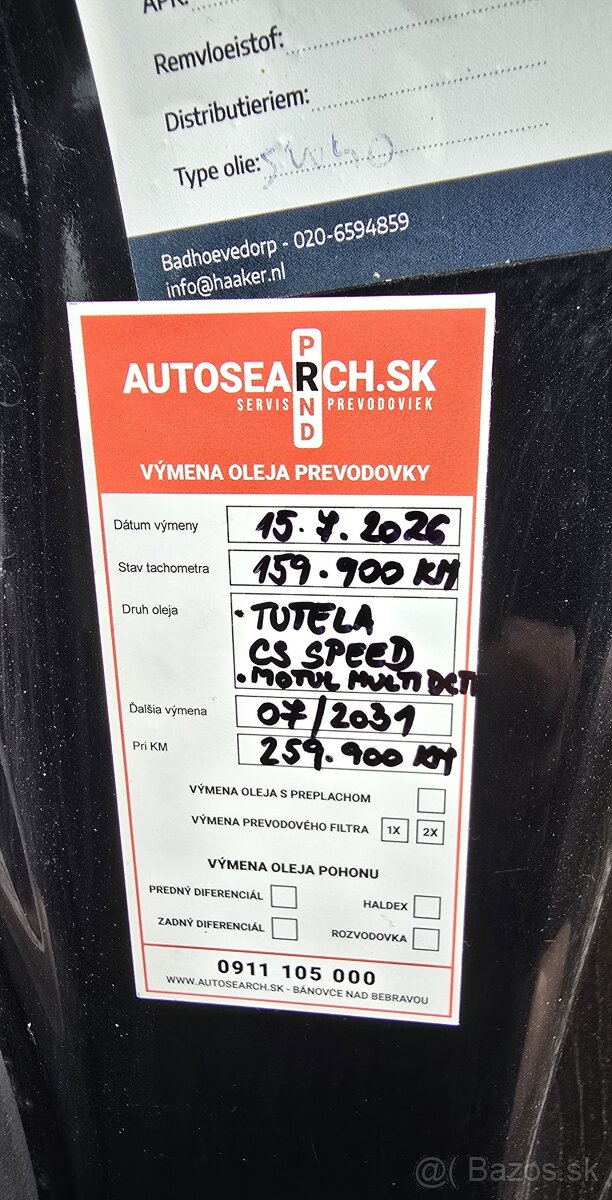 APK:
Remvloeistof:
Distributieriem:
Type olie: 5W40
Badhoevedorp - 020-6594859
info@haaker.nl
P
AUTOSEARCH.SK
SERVIS N PREVODOVIEK
D
VÝMENA OLEJA PREVODOVKY
Dátum výmeny 15.7.2026
Stav tachometra 159.900 KM
Druh oleja • TUTELA
CS SPEED
• MOTUL MULTI DCTF
Ďalšia výmena 07/2031
Pri KM 259.900 KM
VÝMENA OLEJA S PREPLACHOM
VÝMENA PREVODOVÉHO FILTRA 1X 2X
VÝMENA OLEJA POHONU
PREDNÝ DIFERENCIÁL HALDEX
ZADNÝ DIFERENCIÁL ROZVODOVKA
0911 105 000
WWW.AUTOSEARCH.SK - BÁNOVCE NAD BEBRAVOU
@( Bazos.sk